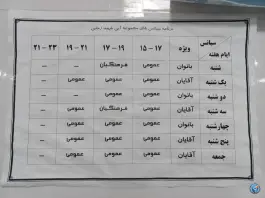 برنامه سانس های مجموعه آبی
سانس ویژه ۱۵ - ۱۷ ۱۷ - ۱۹ ۱۹ - ۲۱ ۲۱ - ۲۳
ایام هفته
شنبه بانوان عمومی فرهنگیان — —
یک شنبه آقایان عمومی عمومی عمومی —
دو شنبه بانوان عمومی عمومی — —
سه شنبه آقایان عمومی فرهنگیان عمومی —
چهارشنبه بانوان عمومی عمومی — —
پنج شنبه آقایان عمومی عمومی عمومی —
جمعه آقایان عمومی عمومی عمومی —